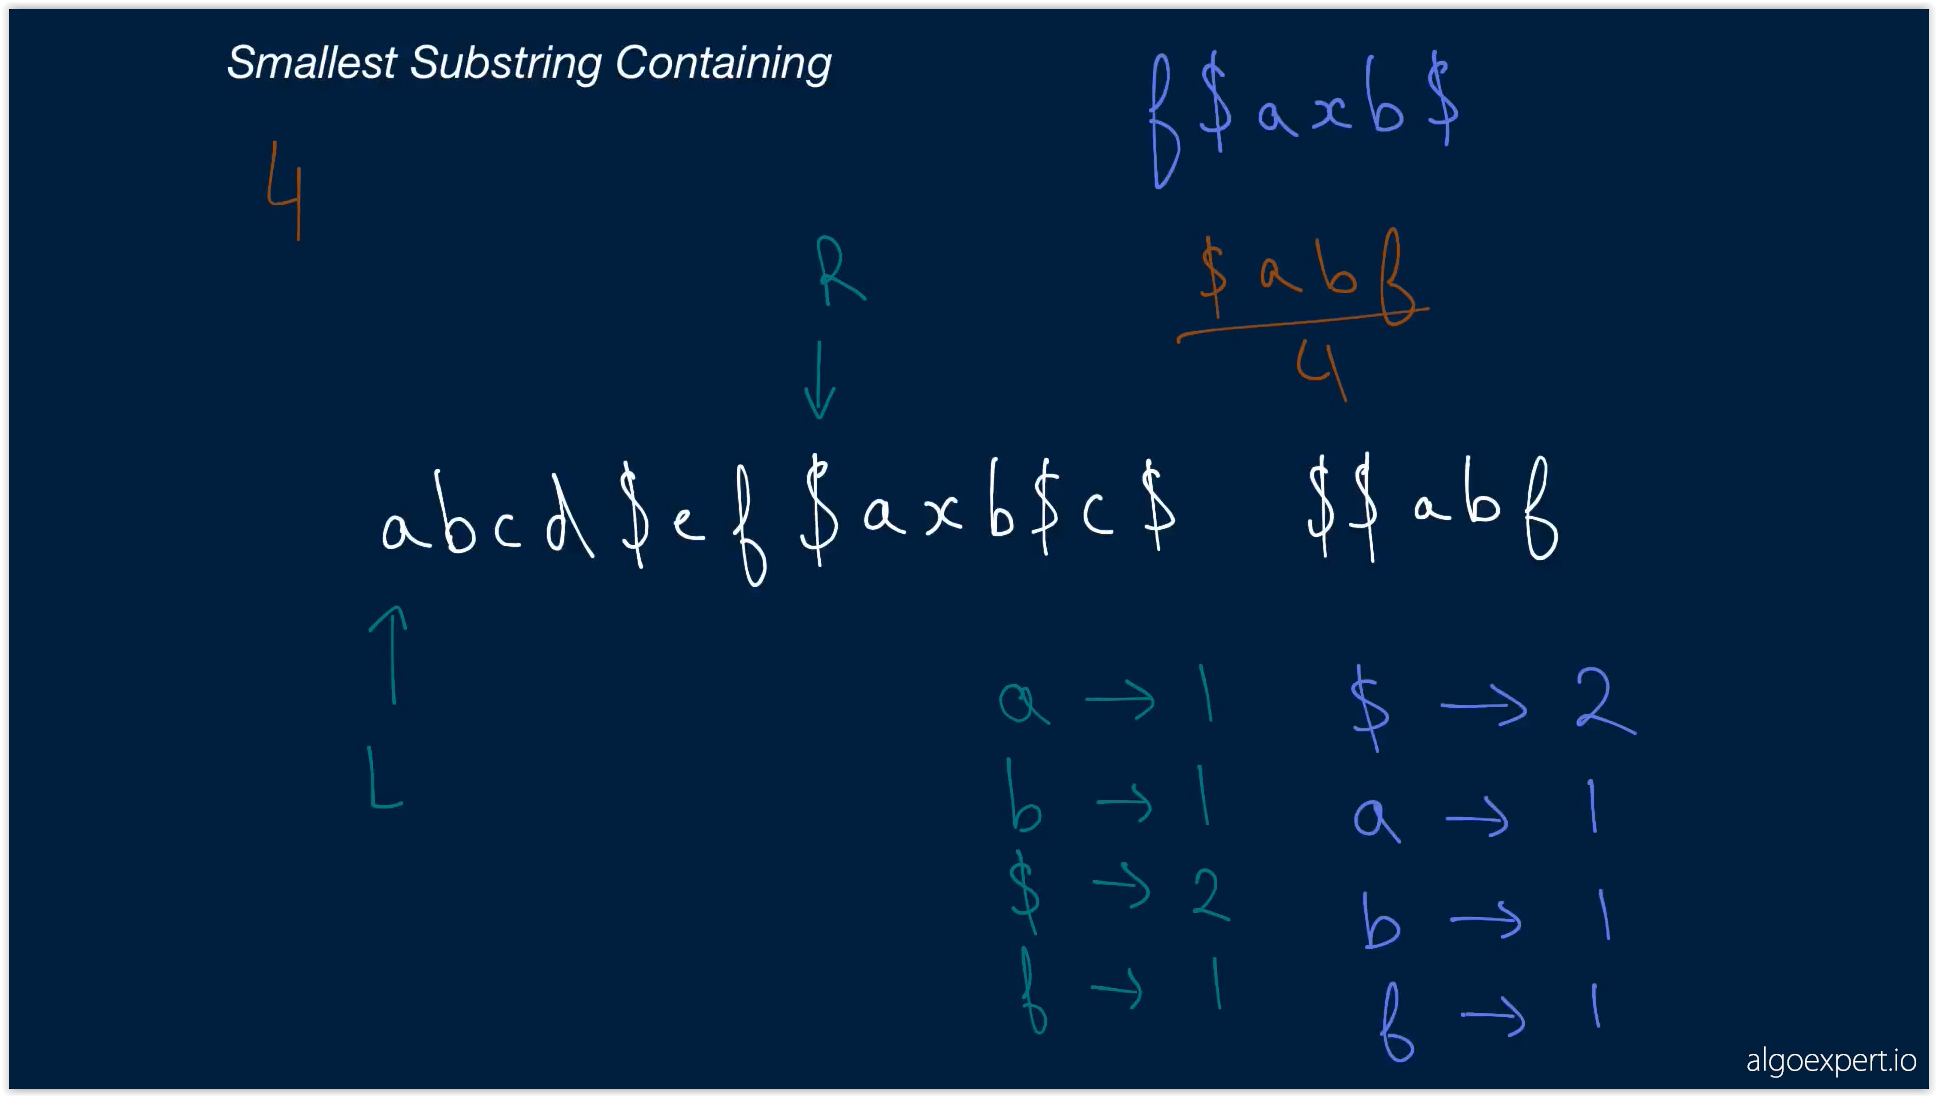 Smallest Substring Containing
f$axb$
4
$abf
4
R
↓
abcd$ef$axb$c$ $$abf
↑
L
a → 1 $ → 2
b → 1 a → 1
$ → 2 b → 1
f → 1 f → 1
algoexpert.io